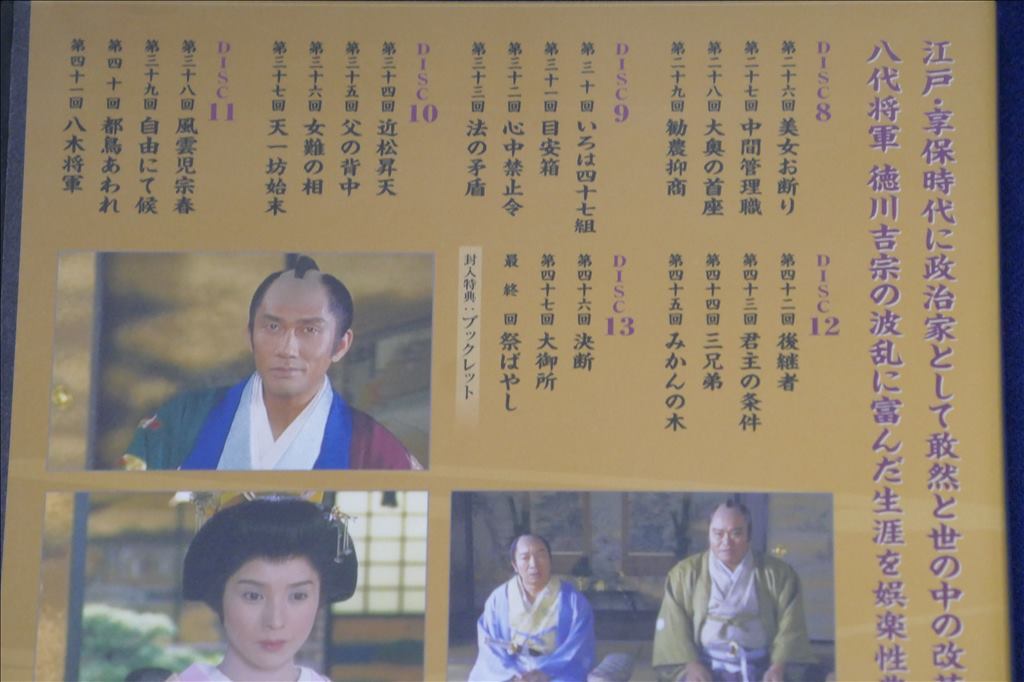 江戸・享保時代に政治家として敢然と世の中の改
八代将軍 徳川吉宗の波乱に富んだ生涯を娯楽性
DISC8
第二十六回 美女お断り
第二十七回 中間管理職
第二十八回 大奥の首座
第二十九回 勧農抑商
DISC9
第三十回 いろは四十七組
第三十一回 目安箱
第三十二回 心中禁止令
第三十三回 法の矛盾
DISC10
第三十四回 近松昇天
第三十五回 父の背中
第三十六回 女難の相
第三十七回 天一坊始末
DISC11
第三十八回 風雲児宗春
第三十九回 自由にて候
第四十回 都鳥あわれ
第四十一回 八木将軍
DISC12
第四十二回 後継者
第四十三回 君主の条件
第四十四回 三兄弟
第四十五回 みかんの木
DISC13
第四十六回 決断
第四十七回 大御所
最終回 祭ばやし
封入特典:ブックレット